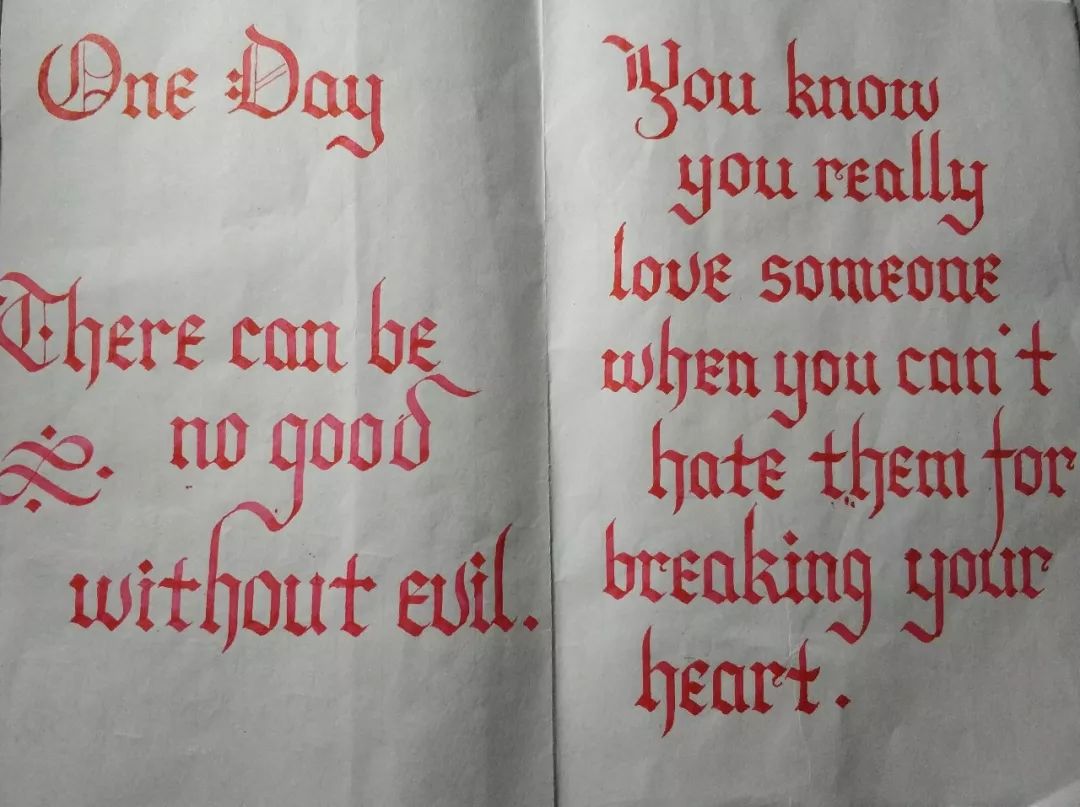 One Day
There can be
no good
without evil.
You know
you really
love someone
when you can't
hate them for
breaking your
heart.